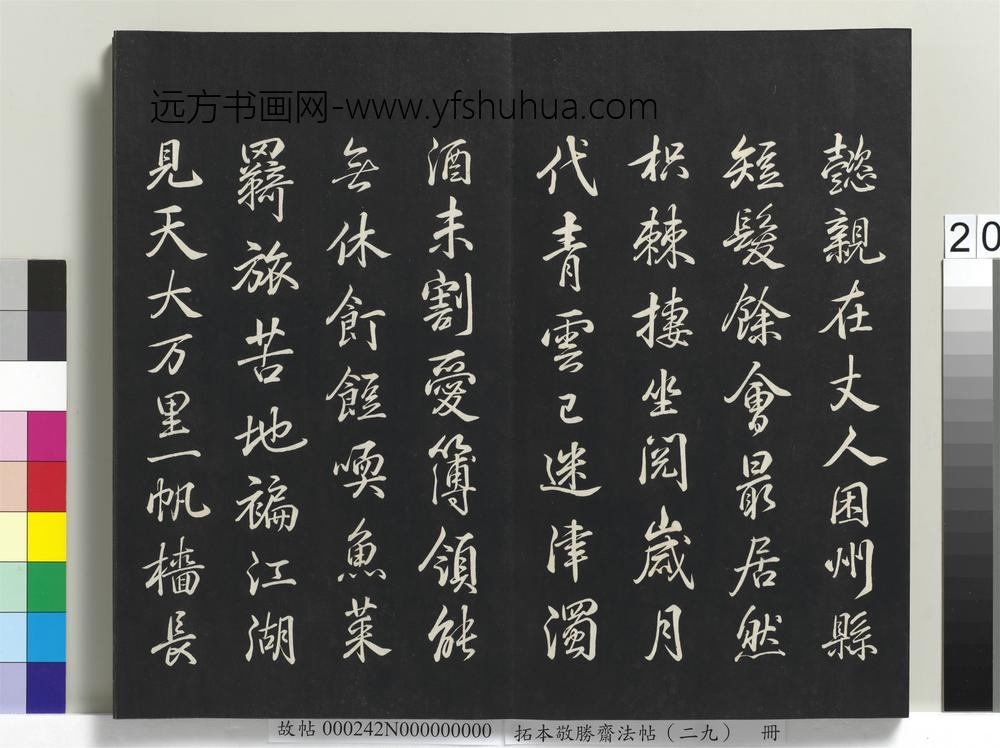 远方书画网-www.yfshuhua.com
懿親在丈人困州縣
短髮餘會最居然
枳棘捿坐閱歲月
代青雲已迷津濁
酒未割愛簿領能
無休飣餖喚魚菜
羇旅苦地褊江湖
見天大万里一帆檣長
20
故帖 000242N000000000 拓本敬勝齋法帖（二九） 冊